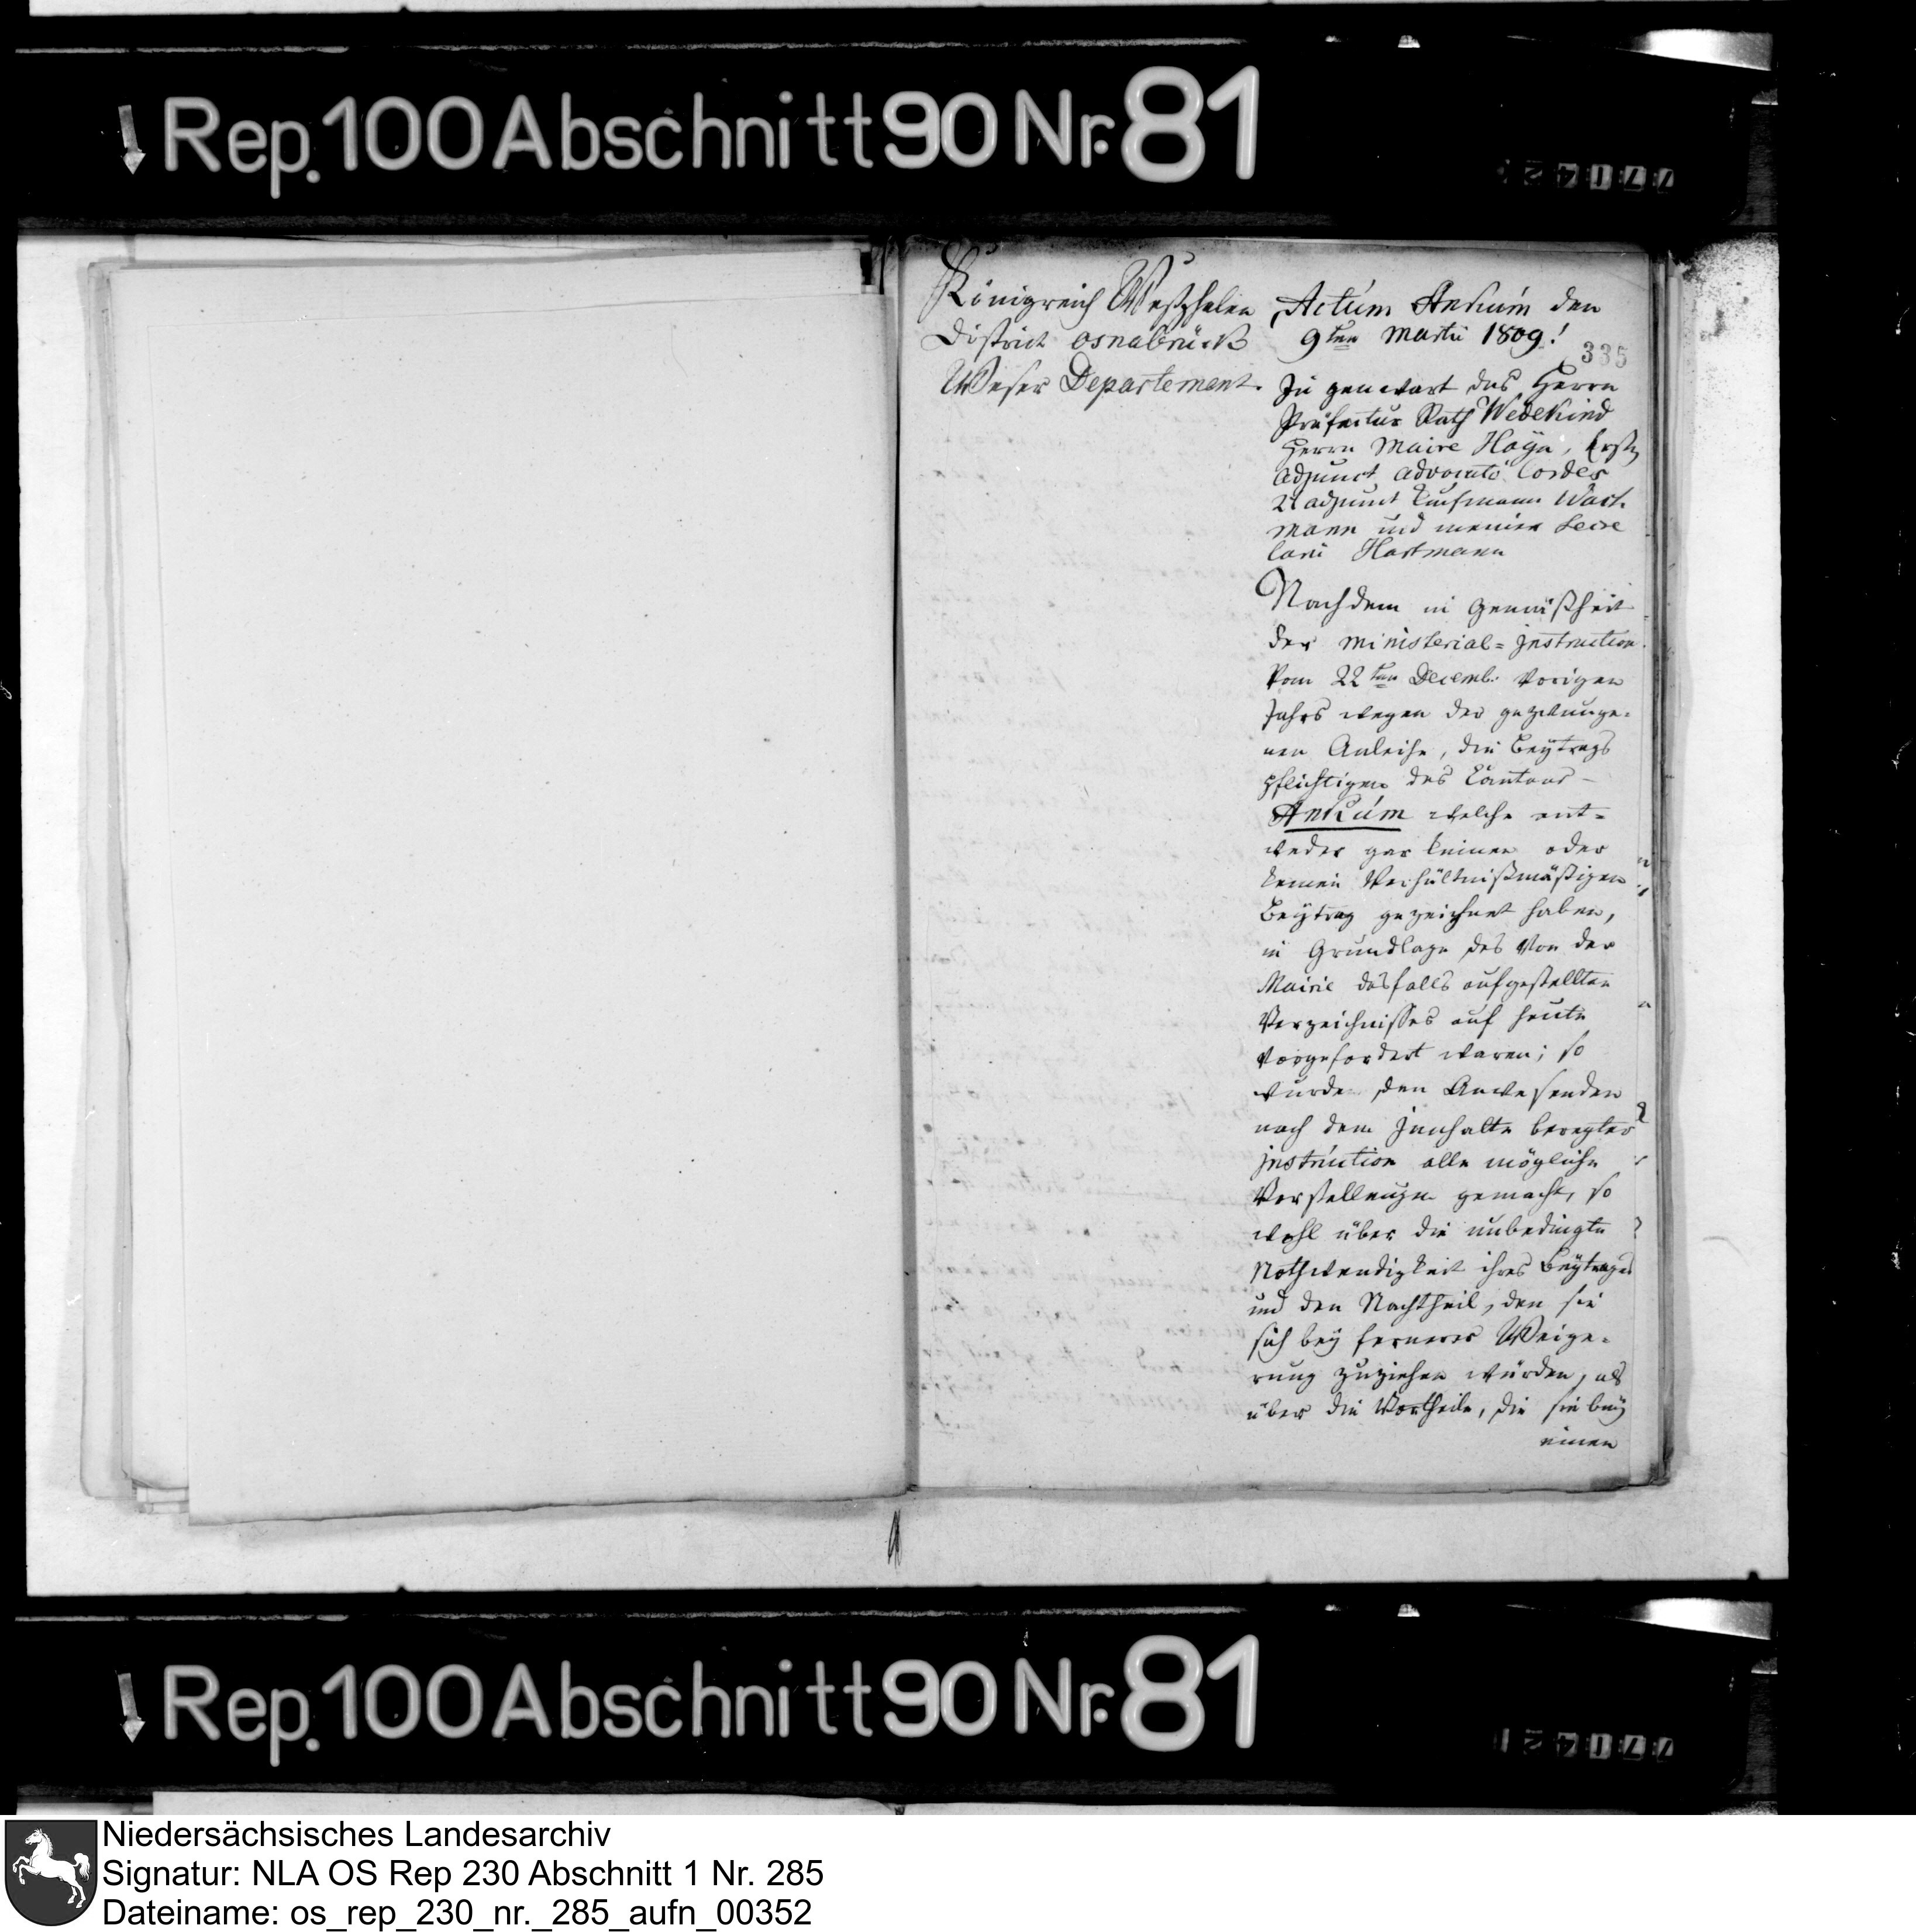 Rep. 100 Abschnitt 90 Nr. 81
Königreich Westphalen
District Osnabrück
Weser Departement.
Actum Ankum den
9ten Martii 1809!
335
In genwart des Herrn
Präfectur Rath Wedekind
Herrn Maire Hoya, Erst
Adjunct Advocato Cordes
2t adjunct Kaufmann Wart-
mann und meiner Secre
tarii Hartmann
Nachdem in Gemäßheit
der Ministerial=Instruction
vom 22ten Decemb. vorigen
Jahrs wegen der gezwunge-
nen Anleihe, die Beytrags
pflichtigen des Cantons
Ankum welche ent=
weder gar keinen oder
keinen Verhältnißmäßigen
Beytrag gezeichnet haben,
in Grundlage des von der
Mairie desfalls aufgestellten
Verzeichnisses auf heute
vorgefordert waren; so
wurde den Anwesenden
nach dem Innhalte beregter
Instruction alle mögliche
Vorstellungen gemacht, so
wohl über die unbedingte
Nothwendigkeit ihres Beytrages
und den Nachtheil, den sie
sich bey fernerer Weige-
rung zuziehen würden, als
über die Vortheile, die sie bey
einen
Rep. 100 Abschnitt 90 Nr. 81
Niedersächsisches Landesarchiv
Signatur: NLA OS Rep 230 Abschnitt 1 Nr. 285
Dateiname: os_rep_230_nr._285_aufn_00352